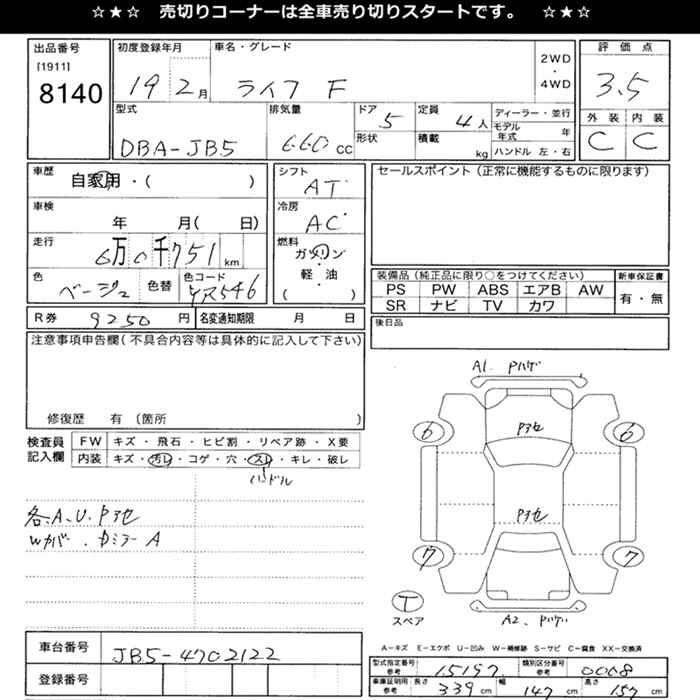 ☆★☆ 売切りコーナーは全車売り切りスタートです。 ☆★☆
出品番号
[1911]
8140
初度登録年月
19 2月
車名・グレード
ライフ F
2WD
・
4WD
評価点
3.5
外装 内装
C C
型式
DBA-JB5
排気量
660 CC
ドア
5
形状
定員
4人
積載
kg
ディーラー・並行
モデル年式 年
ハンドル 左・右
車歴
自家用・( )
シフト
AT
セールスポイント(正常に機能するものに限ります)
車検
年 月( 日)
冷房
AC
走行
6万0千751km
燃料
ガソリン
・
軽油
( )
色
ベージュ
色替
色コード
YR546
装備品(純正品に限り○をつけてください)
新車保証書
PS PW ABS エアB AW
有・無
SR ナビ TV カワ
R券 9250円
名変通知期限 月 日
後日品
注意事項申告欄(不具合内容等は具体的に記入して下さい)
修復歴 有 (箇所 )
検査員
記入欄
FW キズ・飛石・ヒビ割・リペア跡・X要
内装 キズ・汚レ・コゲ・穴・スレ・キレ・破レ
ハンドル
各.A.U.Pヨセ
Wカバー.Dミラー A
A1. Pハゲ
Pヨセ
6 6
Pヨセ
7 7
T
スペア
A2. Pハゲ
車台番号
JB5-4702122
登録番号
A-キズ E-エクボ U-凹み W-補修跡 S-サビ C-腐食 XX-交換済
型式指定番号
参考
15197
類別区分番号
参考
0008
車庫証明用
参考
長さ 339 cm
幅 147 cm
高さ 157 cm